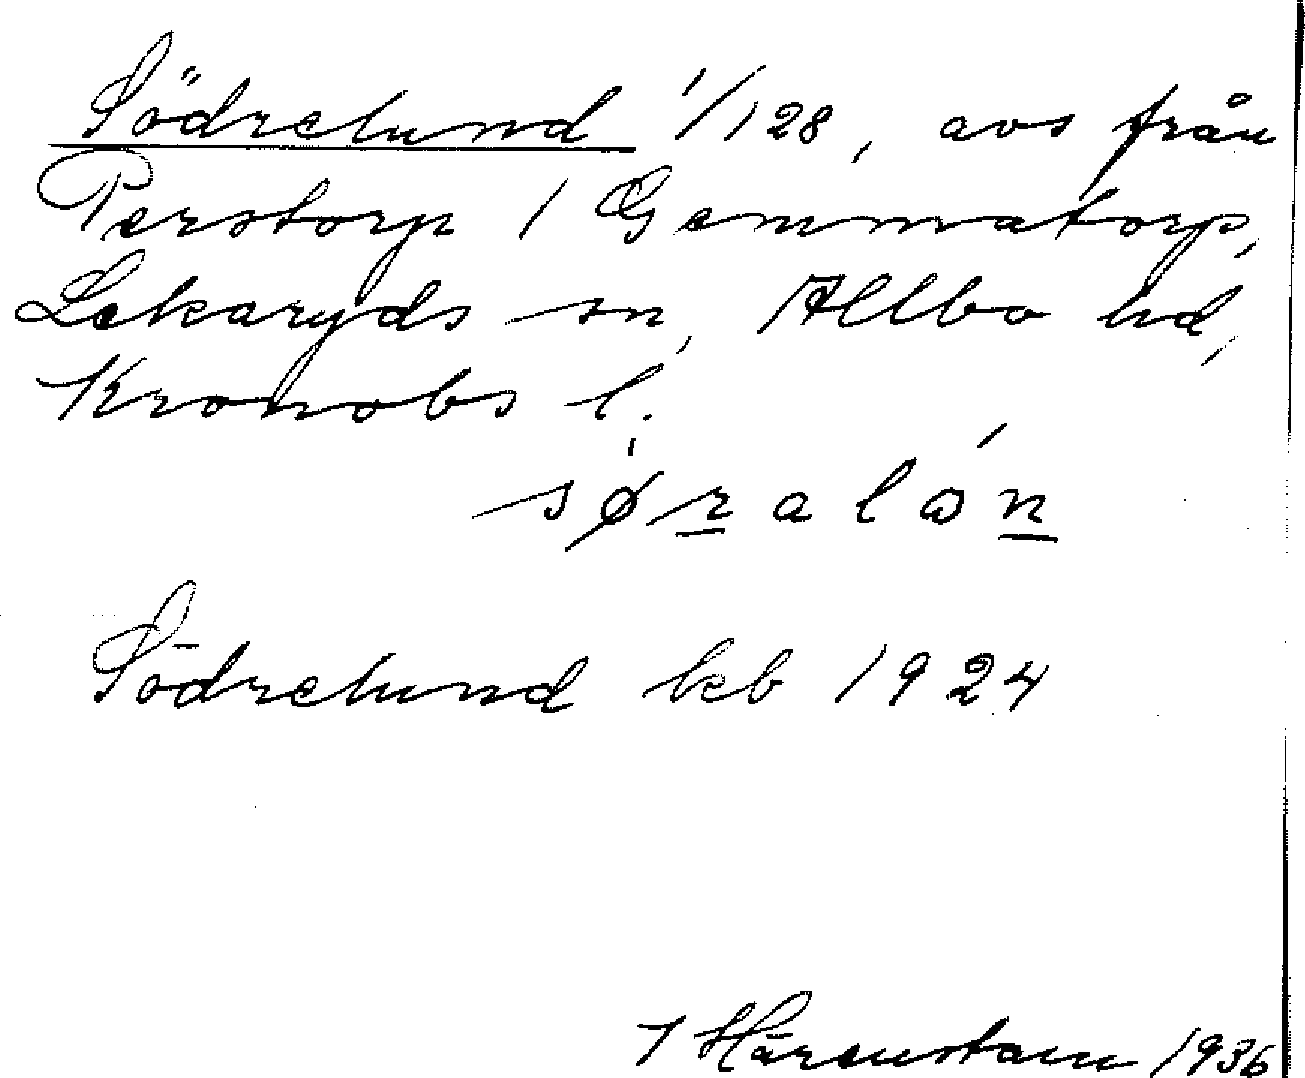 Södrelund 1/128, avs från
Perstorp / Gemmatorp,
Lekaryds sn, Allbo hd,
Kronobs l.
sø̀ralə́n
Södrelund kb 1924
I Härenstam 1936